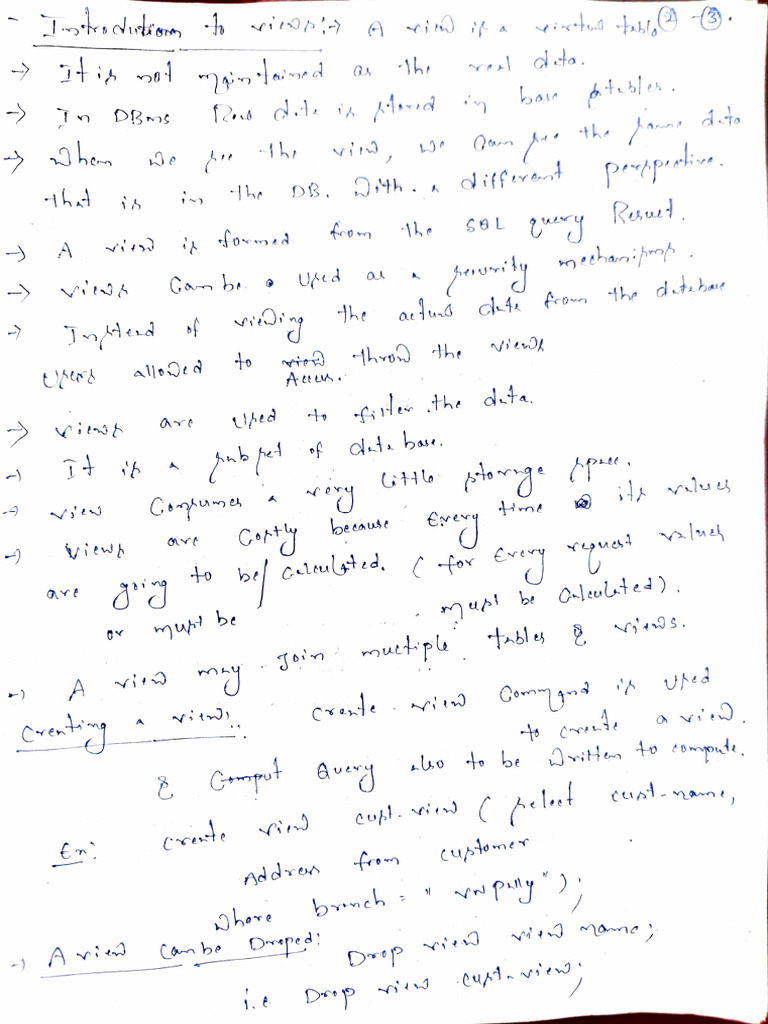 - Introduction to views:→ A view is a virtual table ② - ③.
→ It is not maintained as the real data.
→ In DBMS Real data is stored in base tables.
→ When we see the view, we can see the same data
that is in the DB. With a different perspective.
→ A view is formed from the SQL query Result.
→ views Can be used as a security mechanisms.
→ Instead of viewing the actual data from the database
users allowed to view throw the views
Access.
→ views are used to filter the data.
→ It is a subset of data base.
→ view Consumes a very little storage space.
→ views are Costly because Every time its values
are going to be / Calculated. ( for Every request values
or must be must be Calculated).
→ A view may Join multiple tables & views.
Creating a view: Create view Command is used
to create a view.
& Comput Query also to be written to compute.
Ex: Create view cust-view ( select cust-name,
Address from customer
where branch = " vnpally" );
→ A view can be Droped: Drop view view name;
i.e Drop view cust-view;